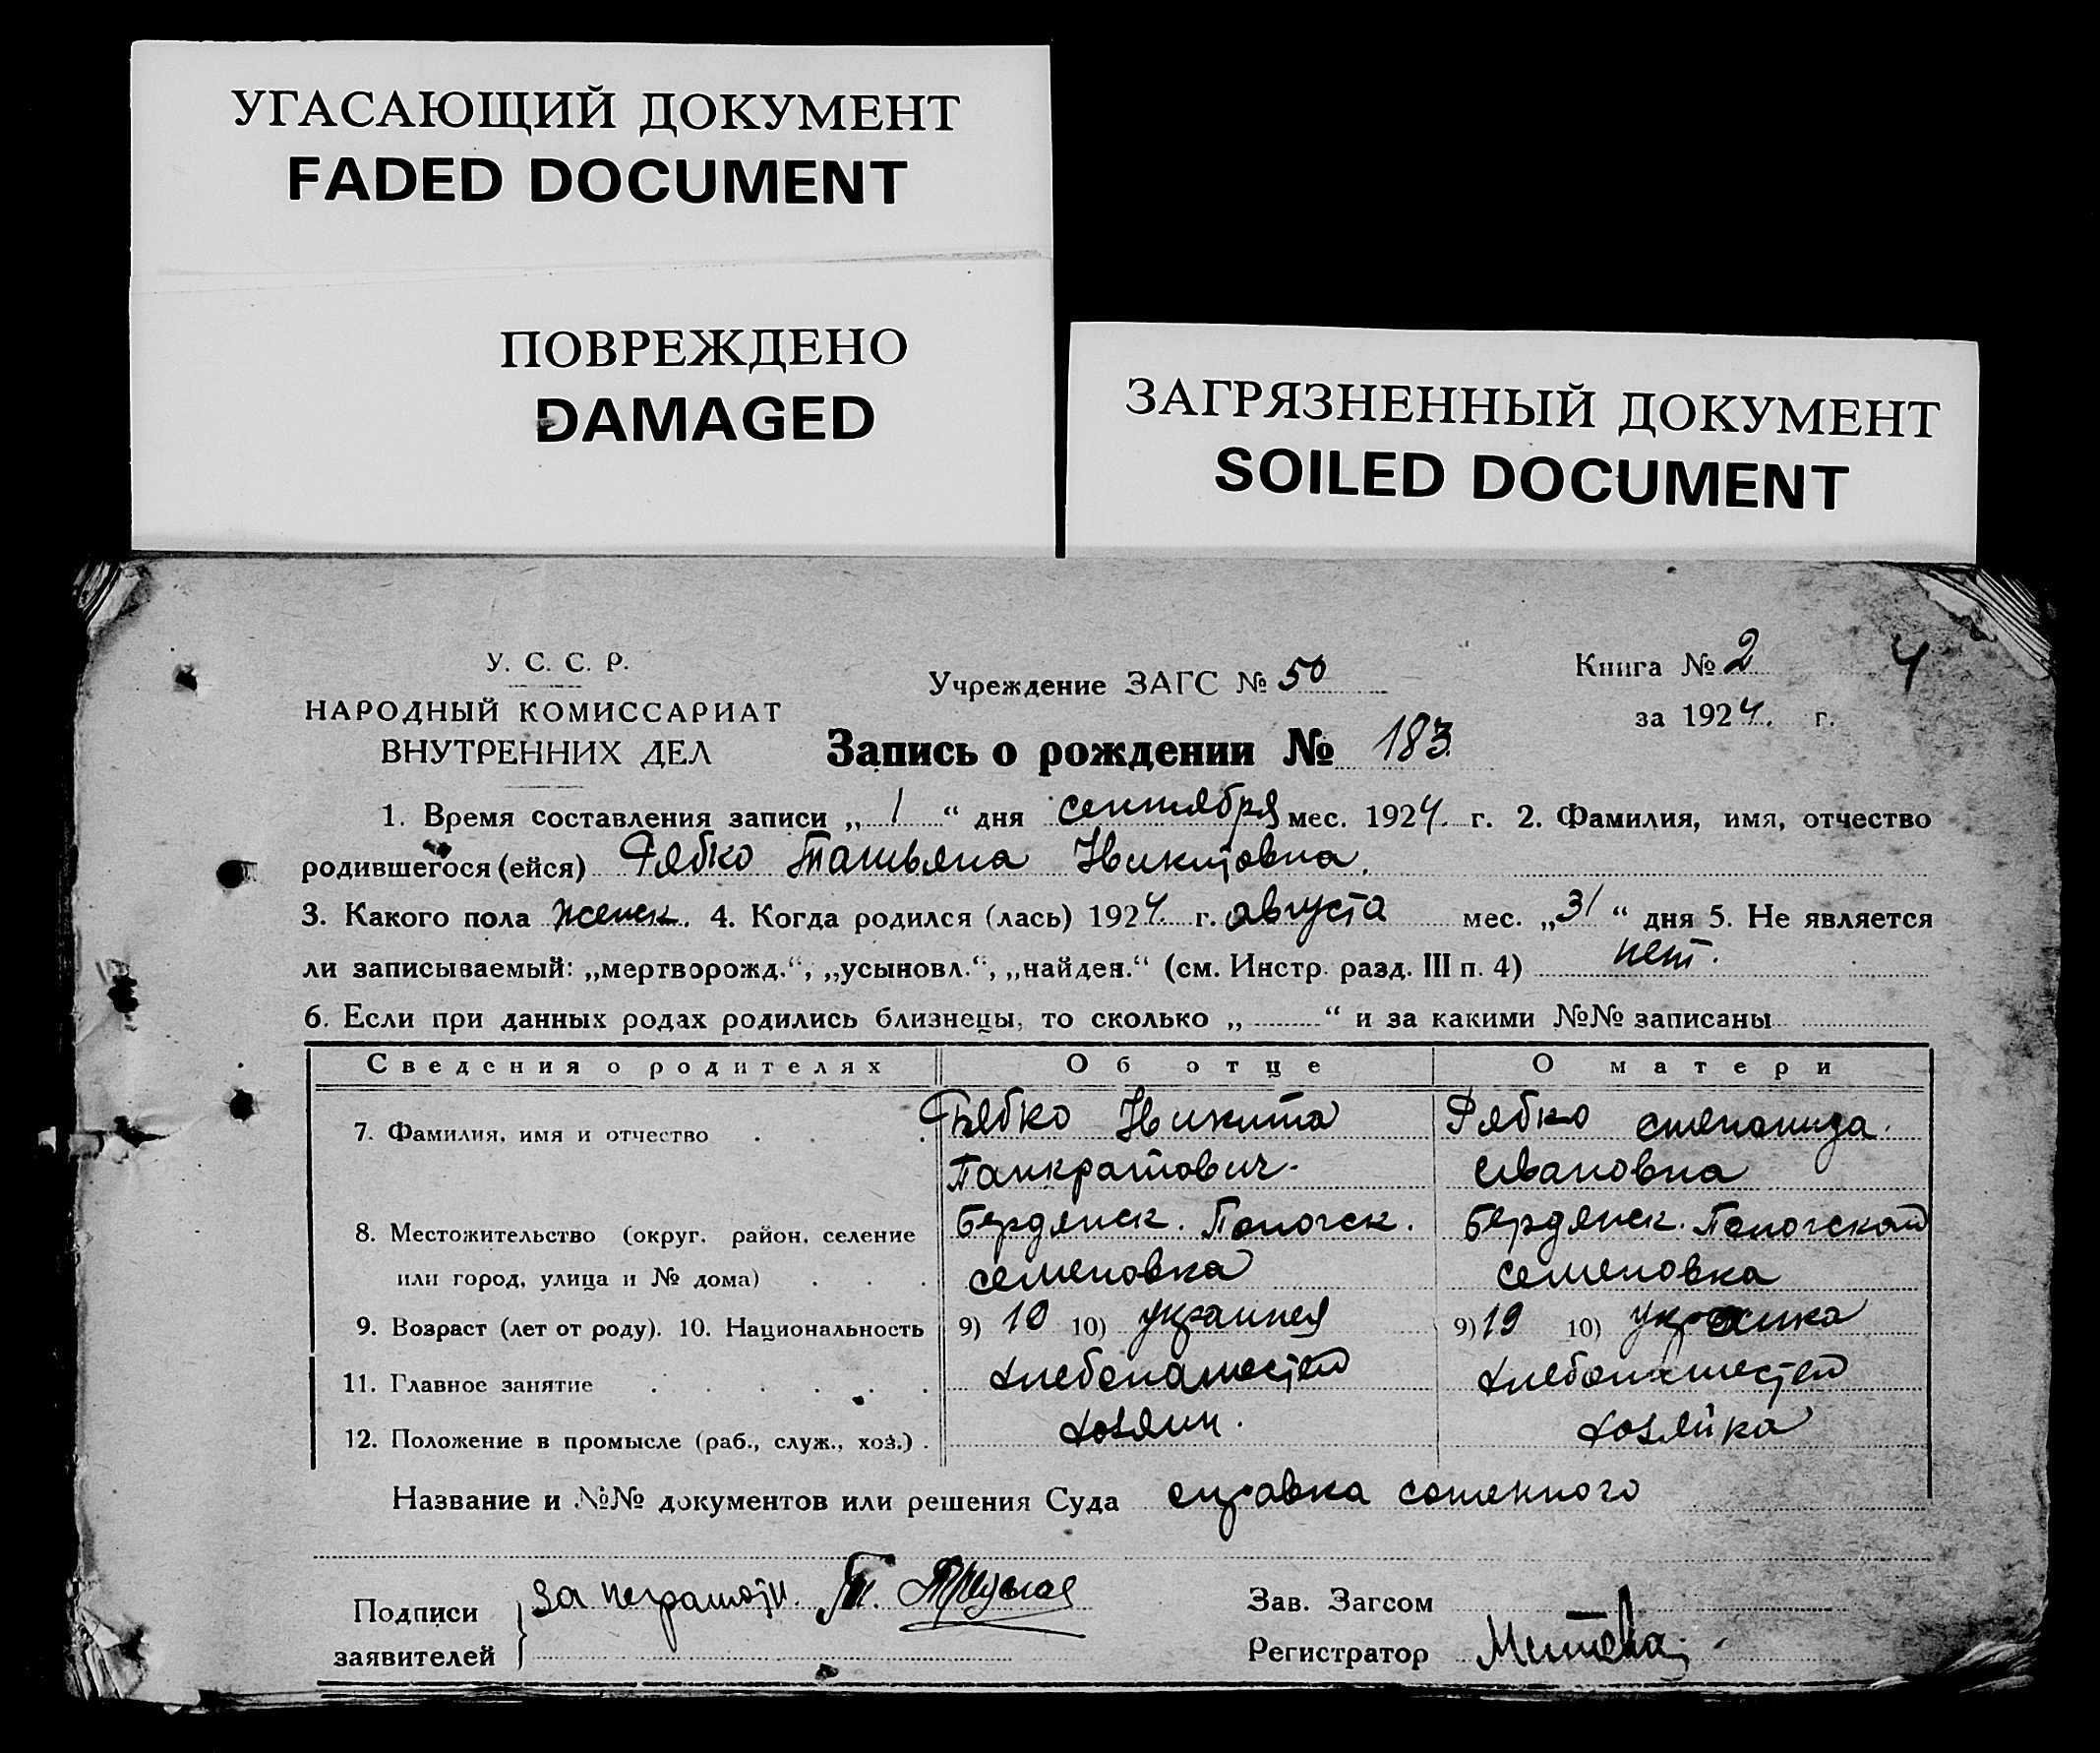 УГАСАЮЩИЙ ДОКУМЕНТ
FADED DOCUMENT
ПОВРЕЖДЕНО
DAMAGED
ЗАГРЯЗНЕННЫЙ ДОКУМЕНТ
SOILED DOCUMENT
У. С. С. Р.
НАРОДНЫЙ КОМИССАРИАТ
ВНУТРЕННИХ ДЕЛ
Учреждение ЗАГС № 50
Книга № 2 4
за 1924. г.
Запись о рождении № 183
1. Время составления записи „ 1 “ дня сентября мес. 1924. г. 2. Фамилия, имя, отчество
родившегося (ейся) Рябко Татьяна Никитовна.
3. Какого пола женск. 4. Когда родился (лась) 1924 г. августа мес. „31“ дня 5. Не является
ли записываемый: „мертворожд.“, „усыновл.“, „найден.“ (см. Инстр. разд. III п. 4) нет.
6. Если при данных родах родились близнецы, то сколько „ “ и за какими №№ записаны
Сведения о родителях Об отце О матери
7. Фамилия, имя и отчество Рябко Никита Рябко степанида
Панкратович. Ивановна
8. Местожительство (округ, район, селение Бердянск. Пологск. Бердянск. Пологской
или город, улица и № дома) семеновка семеновка
9. Возраст (лет от роду). 10. Национальность 9) 10) украинец 9) 19 10) украинка
11. Главное занятие хлебопашестей хлебопашестей
12. Положение в промысле (раб., служ., хоз.) хозяин. хозяйка
Название и №№ документов или решения Суда справка сотенного
Подписи
заявителей
за неграмотн. Т.
Зав. Загсом
Регистратор